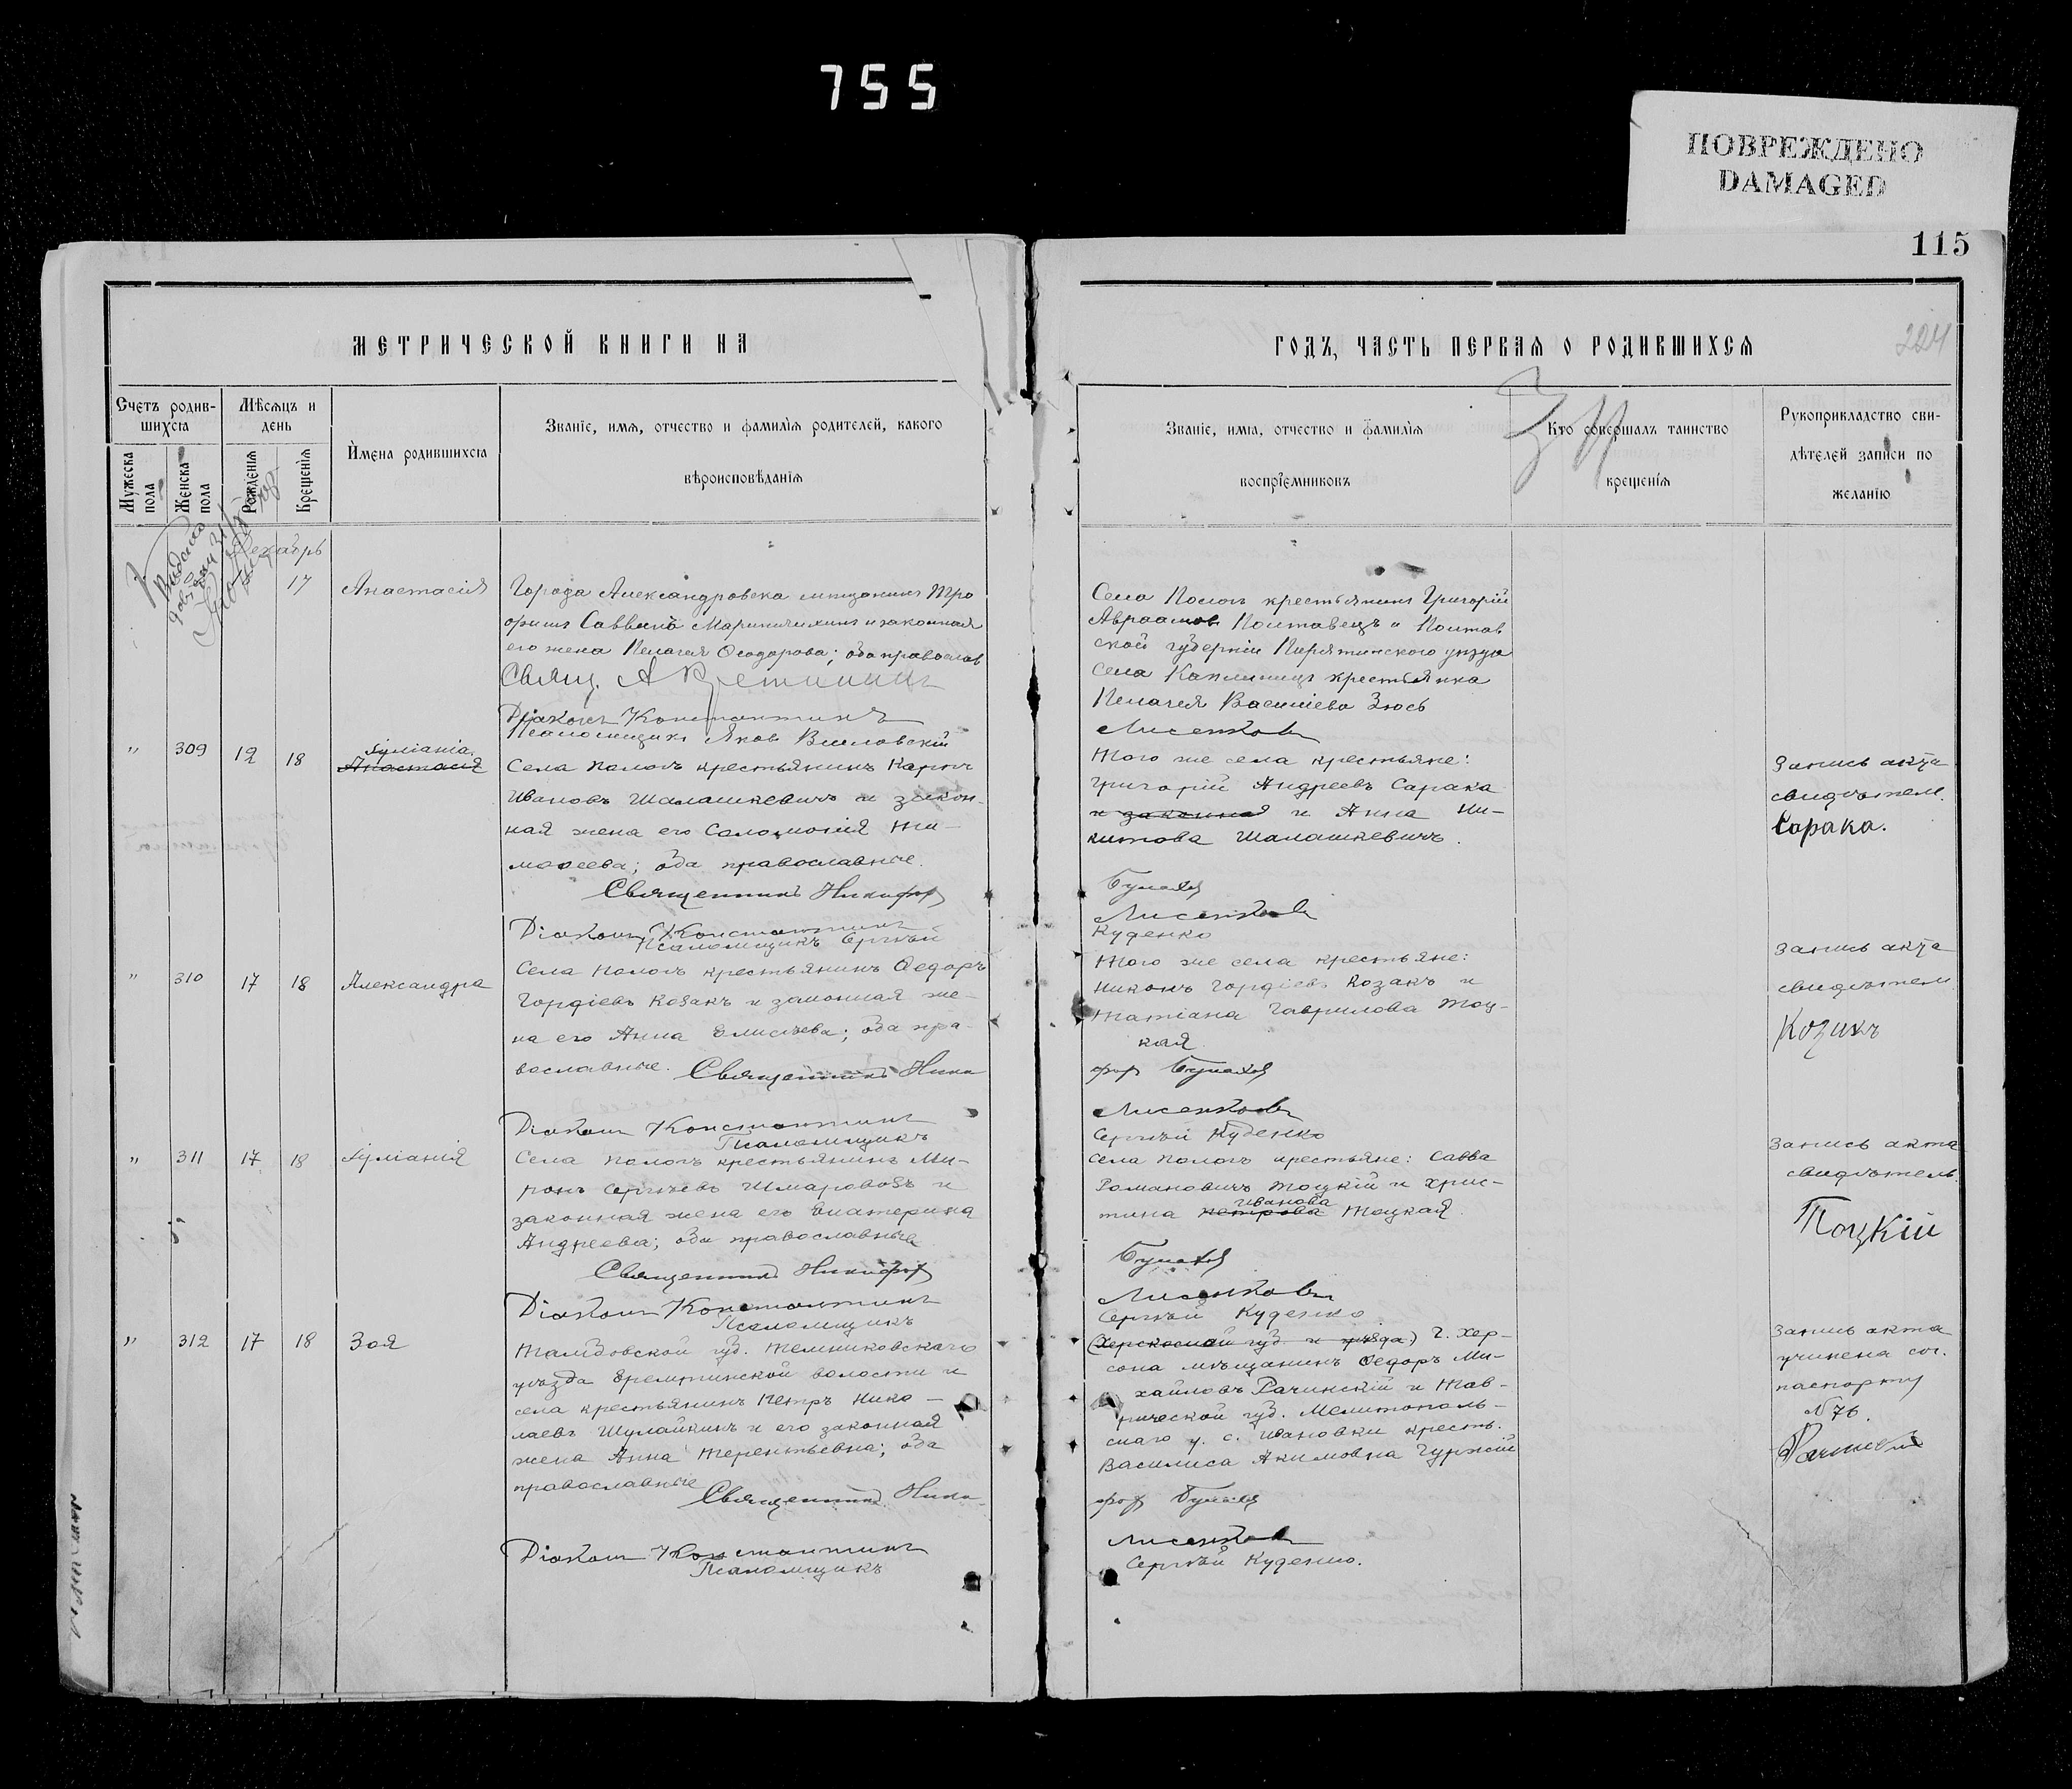 755
ПОВРЕЖДЕНО
DAMAGED
115
224
МЕТРИЧЕСКОЙ КНИГИ НА
ГОДЪ, ЧАСТЬ ПЕРВАЯ О РОДИВШИХСЯ
Счетъ родив-
шихся
Мужеска пола
Женска пола
Мѣсяцъ и
день
Рожденія
Крещенія
Имена родившихся
Званіе, имя, отчество и фамилія родителей, какого
вѣроисповѣданія
Званіе, имя, отчество и фамилія
воспріемниковъ
Кто совершалъ таинство
крещенія
Рукоприкладство сви-
дѣтелей записи по
желанію
Декабрь
17
Анастасія
Города Александровска мѣщанинъ Тро
фимъ Саввинъ и законная
его жена Пелагея Ѳеодорова; оба православ
Свящ. А
Діаконъ Константинъ
Псаломщикъ Яковъ
Села Пологъ крестьянинъ Григорій
Авраамовъ Полтавецъ и Полтав
ской губерніи Пирятинского уѣзда
села Каплинецъ крестьянка
Пелагея Васильева Зюсь
Лисенковъ
" 309 12 18
Іуліанія
Анастасія
Села Пологъ крестьянинъ Карпъ
Ивановъ Шалашкевичъ и закон-
ная жена его Соломонія Ти-
моѳеева; оба православные.
Священникъ Никифоръ
Діаконъ Константинъ
Псаломщикъ Сергѣй
Того же села крестьяне:
Григорій Андреевъ Сарака
и законная и Анна Ни-
китова Шалашкевичъ.
Лисенковъ
Куденко
Запись акта
свидѣтел.
Сарака.
" 310 17 18 Александра
Села Пологъ крестьянинъ Ѳедоръ
Гордіевъ Козакъ и законная же-
на его Анна Елисѣева; оба пра-
вославные. Священникъ Ники
Діаконъ Константинъ
Псаломщикъ
Того же села крестьяне:
Никонъ Гордіевъ Козакъ и
Татіана Гаврилова Тоц-
кая.
форъ
Лисенковъ
Сергѣй Куденко
Запись акта
свидѣтел
Козакъ
" 311 17 18 Іуліанія
Села Пологъ крестьянинъ Ми-
ронъ Сергѣевъ Шмаровозъ и
законная жена его Екатерина
Андреева; оба православные
Священникъ Никифоръ
Діаконъ Константинъ
Псаломщикъ
Села Пологъ крестьяне: Савва
Романовичъ Тоцкій и Хрис-
Иванова
тина Петрова Тоцкая.
Лисенковъ
Сергѣй Куденко
Запись акта
свидѣтель
Тоцкій
" 312 17 18 Зоя
Тамбовской губ. Темниковскаго
уѣзда волости и
села крестьянинъ Петръ Нико-
лаевъ Шулайкинъ и его законная
жена Анна Терентьевна; оба
православные
Священникъ Ники-
Діаконъ Константинъ
Псаломщикъ
(Херсонской губ. и уѣзда.) Г. Хер-
сона мѣщанинъ Ѳедоръ Ми-
хайловъ Рачинскій и Тав-
рической губ. Мелитополь-
скаго у. с. Ивановки кресть.
Василиса Акимовна Гуржій
форъ
Лисенковъ
Сергѣй Куденко.
Запись акта
учинена сог.
паспорту
№ 76.
Рачинскій